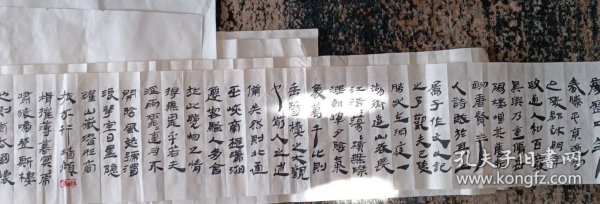 春滕子京謫
政通人和百廢
具興乃重修
刻唐賢今
人詩賦於其上
屬予作文以記
之予觀夫巴陵
勝狀在洞庭一
湖銜遠山吞長
江浩浩湯湯橫無際
涯朝暉夕陰氣
象萬千此則
岳陽樓之大觀
也前人之述
備矣然則北通
巫峽南極瀟湘
遷客騷人多會
於此覽物之情
得無異乎若夫
淫雨霏霏連月不
開陰風怒號濁
浪排空日星隱
曜山岳潛形商
旅不行檣傾
楫摧薄暮冥冥虎
嘯猿啼登斯樓
也則有去國懷
孔夫子旧书网
kongfz.com